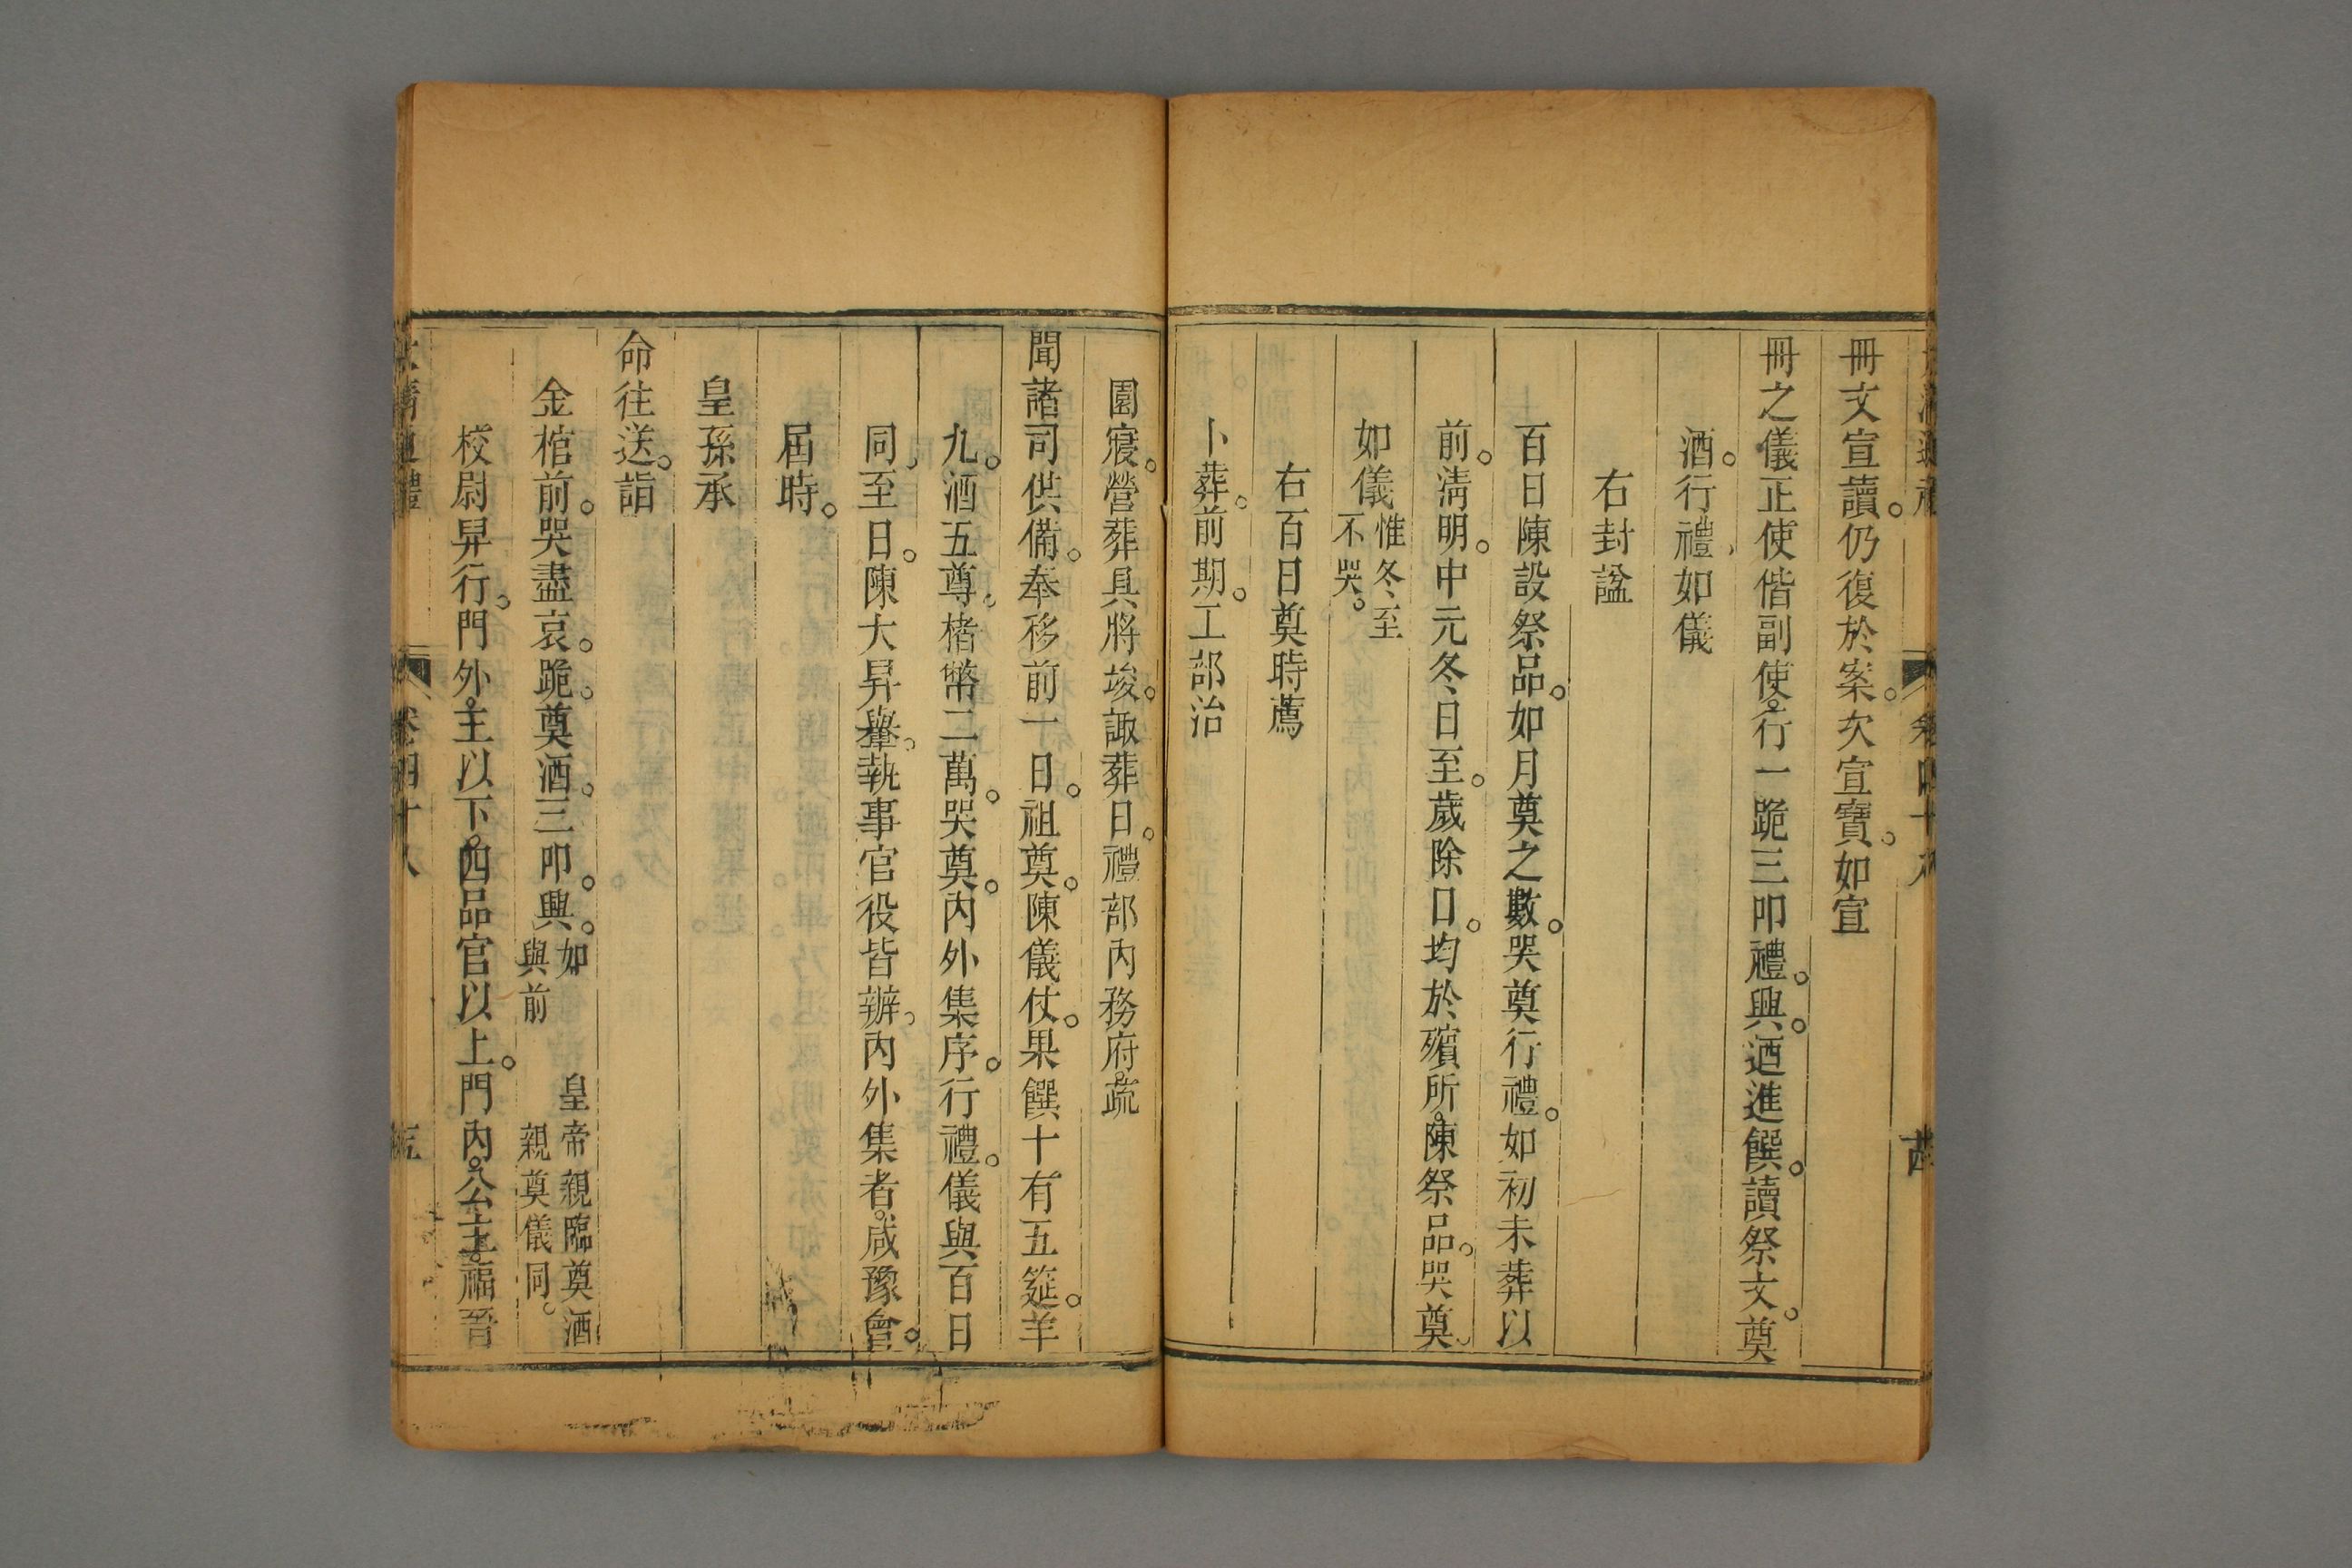 冊文宣讀。仍復於案。次宣寶。如宣
冊之儀正使偕副使。行一跪三叩禮。興。迺進饌。讀祭文。奠
酒。行禮、如儀
右封諡
百日陳設祭品。如月奠之數。哭奠行禮。如初未葬以
前。淸明。中元冬日至。歲除日。均於殯所。陳祭品。哭奠、
如儀惟冬至
不哭。
右百日奠時薦
卜葬。前期。工部治
園寢。營葬具將竣。諏葬日。禮部內務府。疏
聞諸司供備。奉移前一日。祖奠。陳儀仗。果饌十有五筵。羊
九。酒五尊。楮幣二萬。哭奠。內外集序。行禮。儀與百日
同、至日。陳大昇轝。執事官役皆辦。內外集者。咸豫會。
屆時。
皇孫承
命往送。詣
金棺前。哭盡哀。跪。奠酒。三叩。興。如
與前
皇帝親臨奠酒
親奠儀同。
校尉昇行。門外。主以下。四品官以上。門內。公主。福晉
大淸通禮 卷四十八